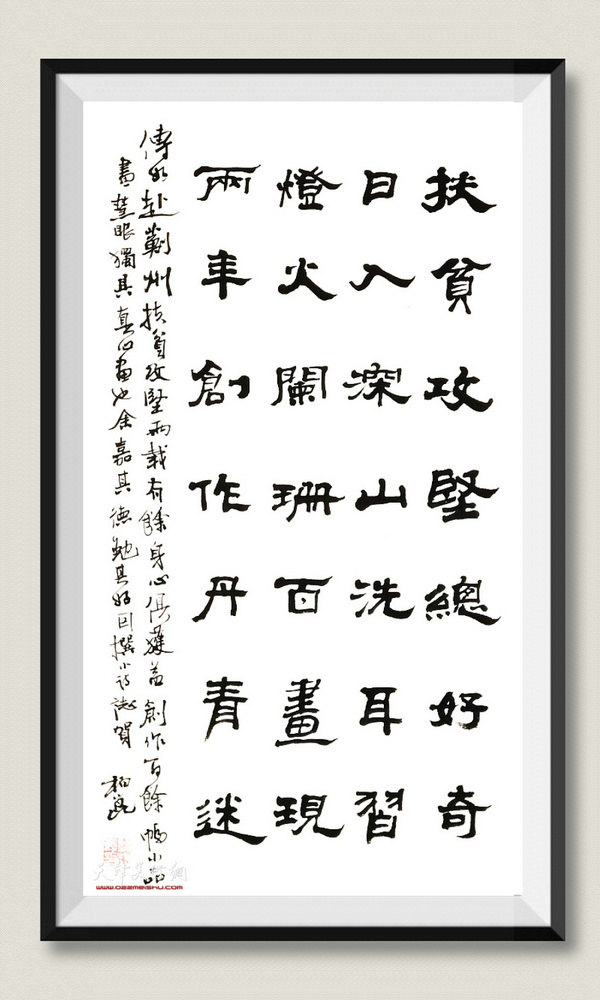 扶貧攻堅總好奇
日入深山洗耳習
燈火闌珊百畫現
兩年創作丹青迷
傳水赴薊州扶貧攻堅兩載有餘身心俱獲益創作百餘幅小品
畫慧眼獨具真心畫也余嘉其德勉其好因撰小詩誌賀
天津美術網
www.022meishu.com